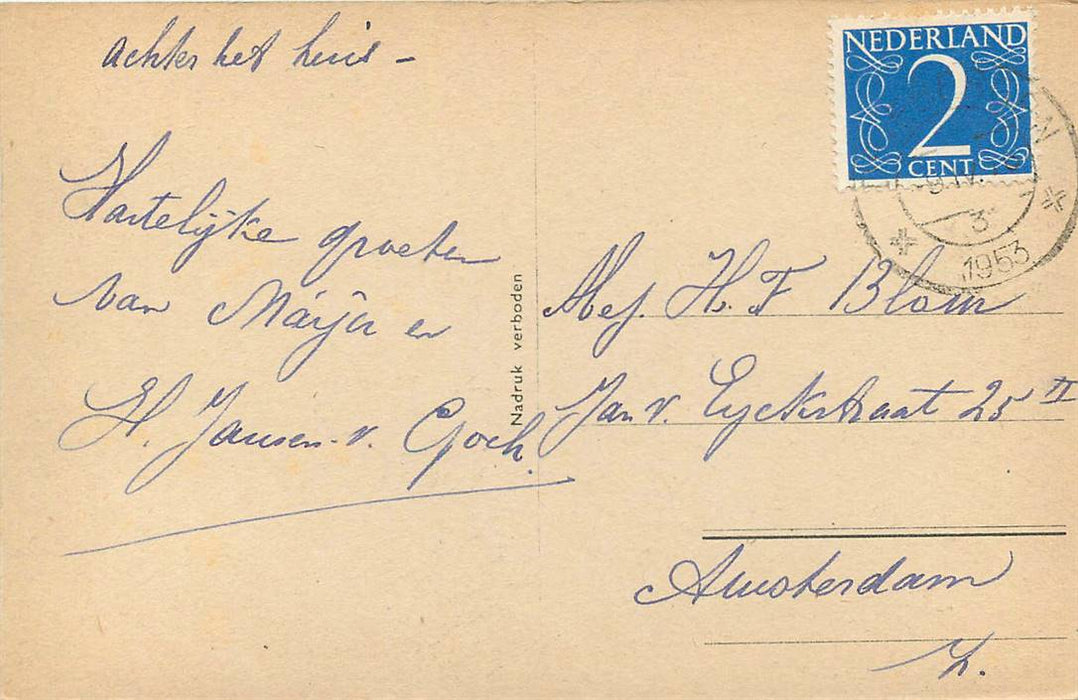 achter het huis –
Hartelijke groeten
van Marja en
H. Jansen - v. Goch.
Nadruk verboden
NEDERLAND
2
CENT
1953
Mej. H. F Blom
Jan v. Eyckstraat 25 II
Amsterdam
Z.